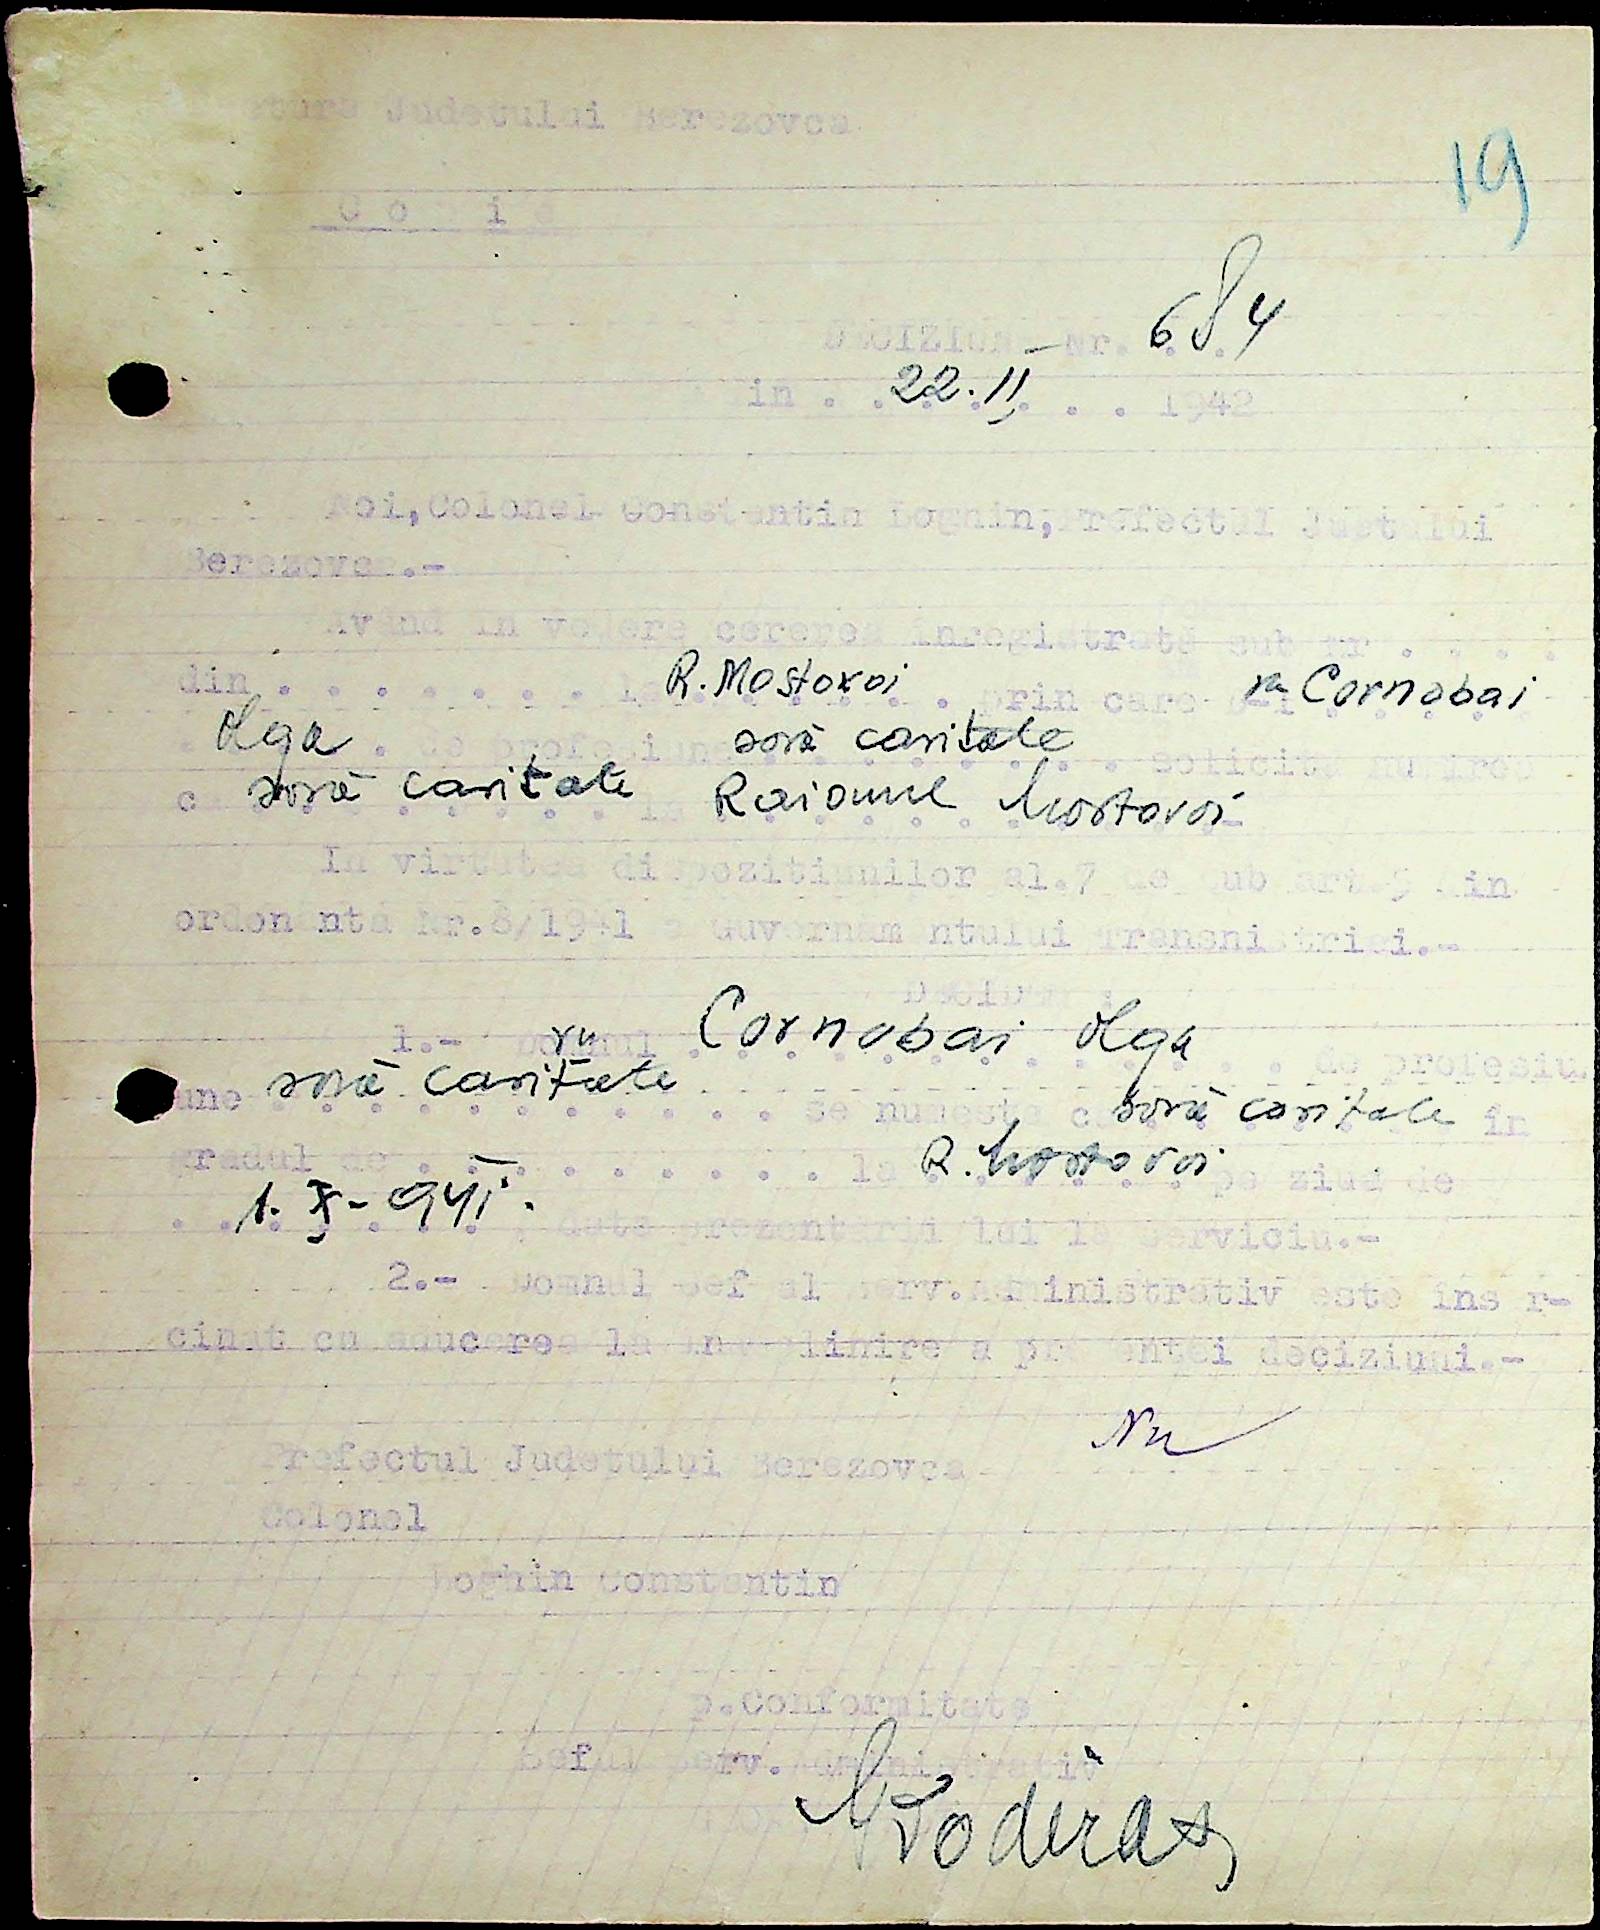 Judetului Berezovca
19
Copie
DECIZIUNE Nr. 684
in . . 22.II . . . 1942
Noi,Colonel Constantin Loghin,Prefectul Județului
Berezovca.-
Având in vedere cererea inregistrată sub nr . . . .
din . . . . . . . . la R. Mostovoi . prin care Cornobai
Olga . de profesiune soră caritate . solicită numirea
ca soră caritate la Raionul Mostovoi
In virtutea dispozitiunilor al.7 de sub art.5 din
ordonanta Nr.8/1941 a Guvernamantului Transnistriei.-
DECIDEM :
1.- Domnul Cornobai Olga . de profesiu
une soră caritate . se numeste ca soră caritate in
gradul de . - . . . . . . . . la R. Mostovoi pe ziua de
1. X - 941 . , data prezentarii lui la serviciu.-
2.- Domnul Sef al Serv.Administrativ este insăr-
cinat cu aducerea la indeplinire a prezentei deciziuni.-
Prefectul Județului Berezovca
Colonel
Loghin Constantin
p.Conformitate
Seful Serv. Administrativ